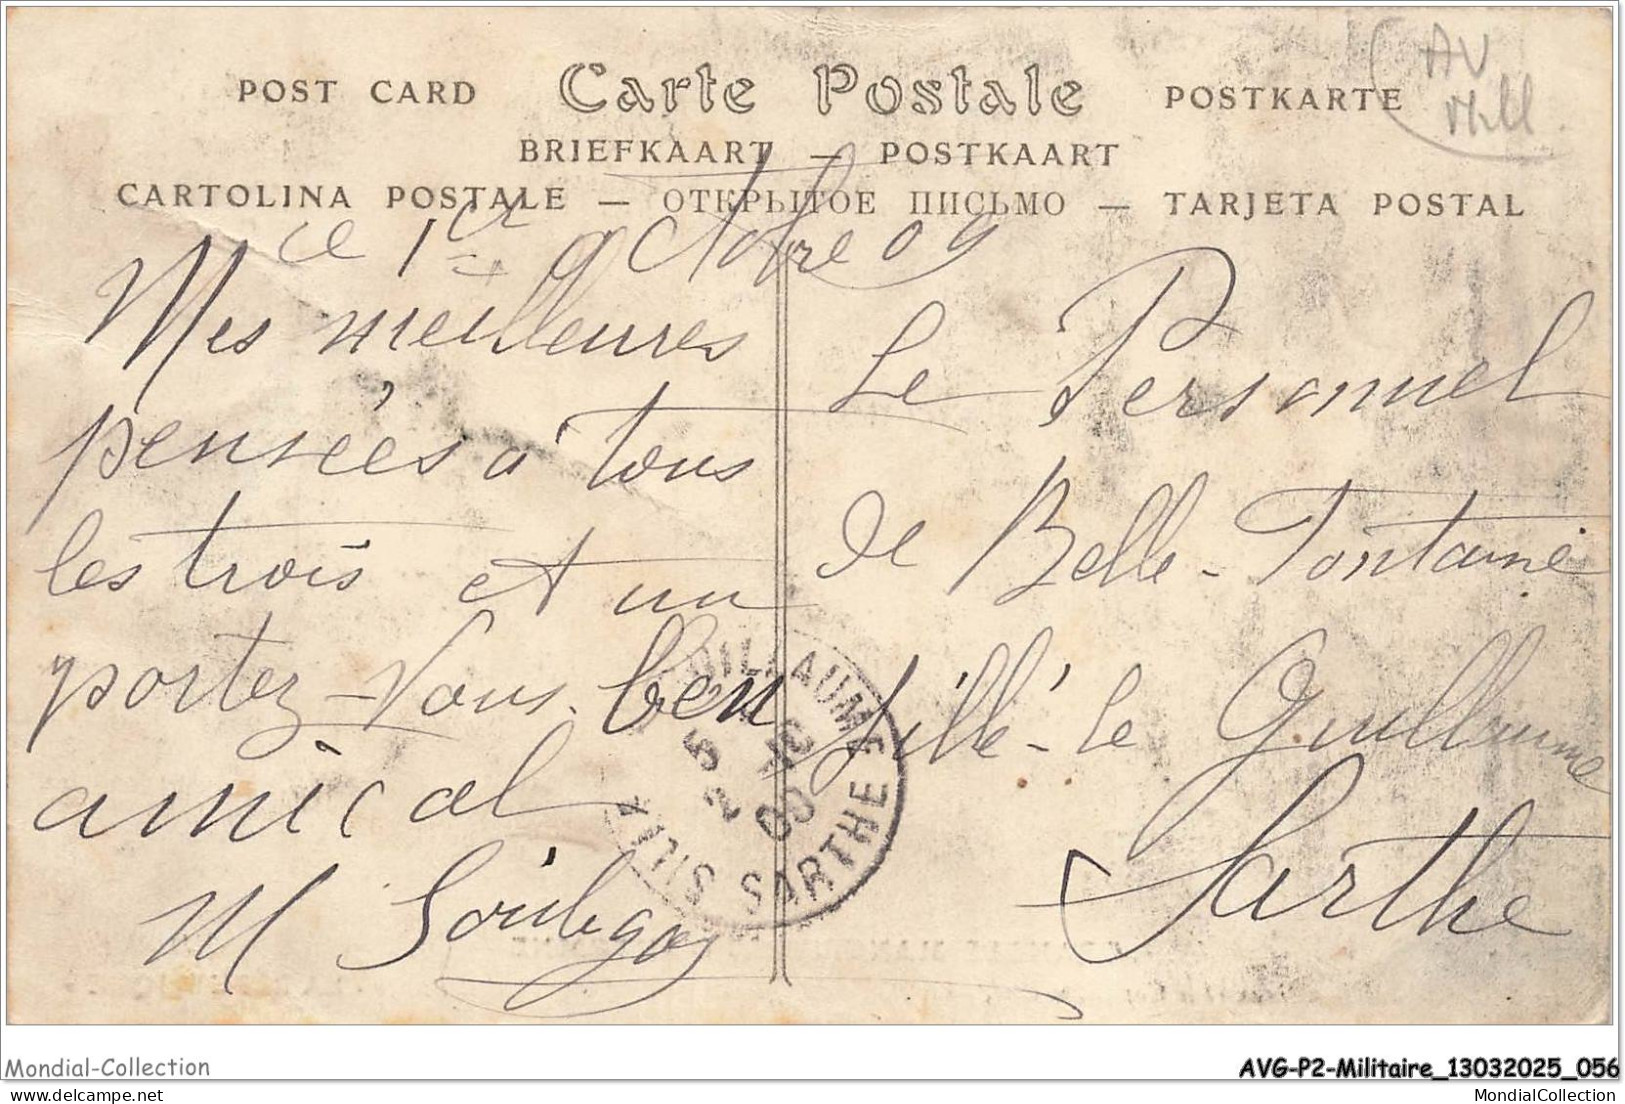 POST CARD Carte Postale POSTKARTE
AV
BRIEFKAART — POSTKAART
CARTOLINA POSTALE — ОТКРЫТОЕ ПИСЬМО — TARJETA POSTAL
ce 1er Octobre 09
Mes meilleures
pensées à tous
les trois et un
portez-vous ben
amical
M
Le Personnel
de Belle-Fontaine
Sillé-le Guillaume
Sarthe
SILLE GUILLAUME
5
2 10
09
SARTHE
Mondial-Collection
AVG-P2-Militaire_13032025_056
MondialCollection